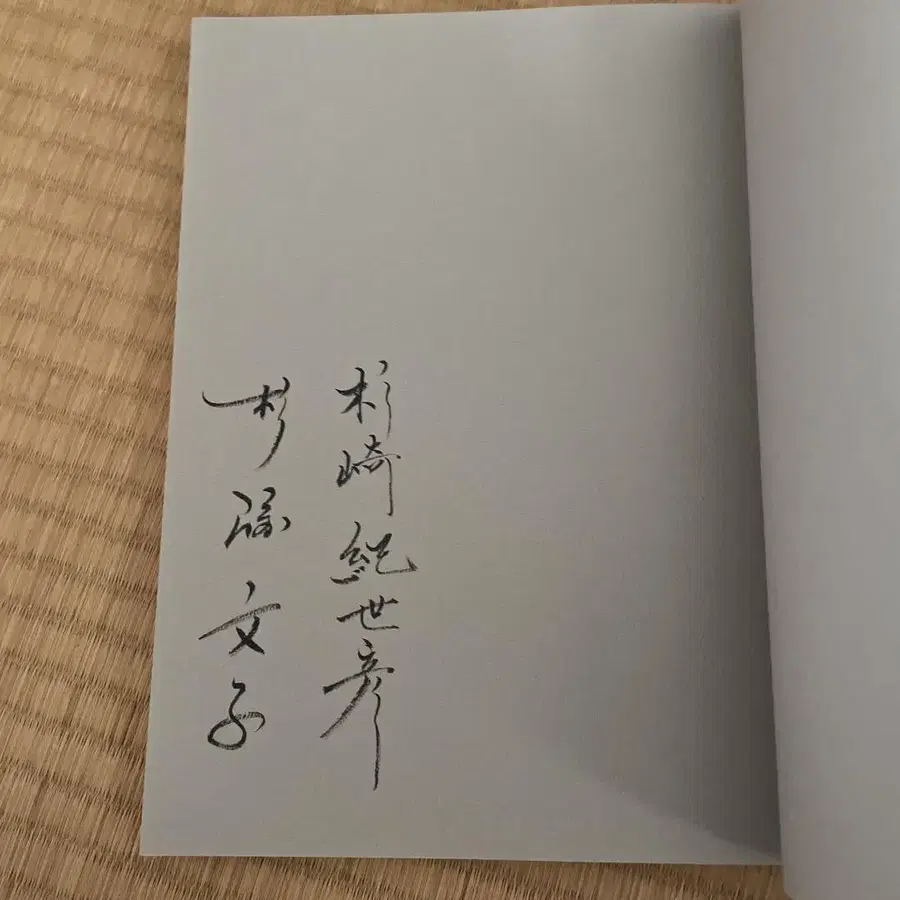 杉崎紀世彦
杉崎文子